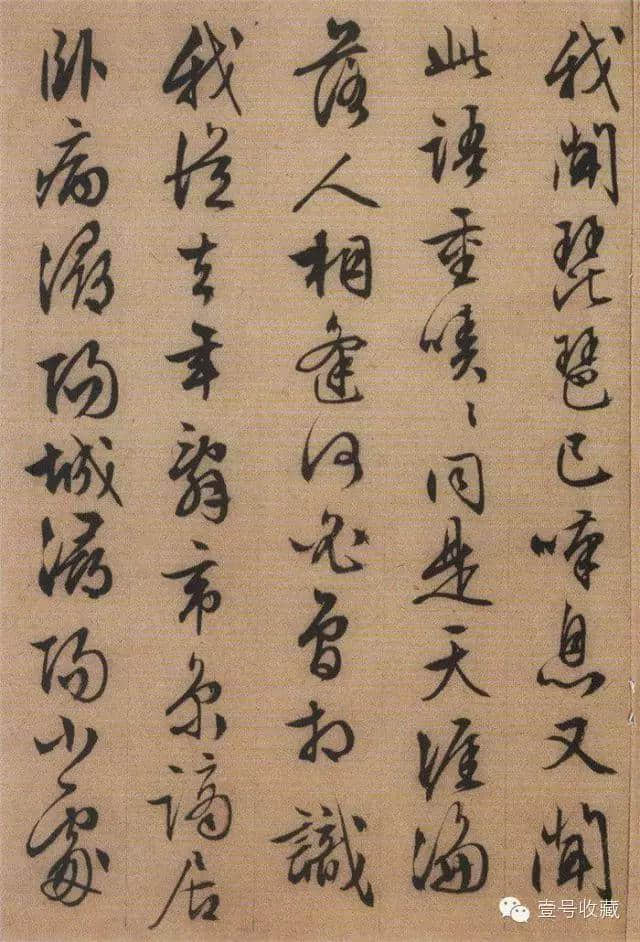 我聞琵琶已嘆息又聞
此語重唧〻同是天涯淪
落人相逢何必曾相識
我從去年辭帝京謫居
臥病潯陽城潯陽小處
壹号收藏